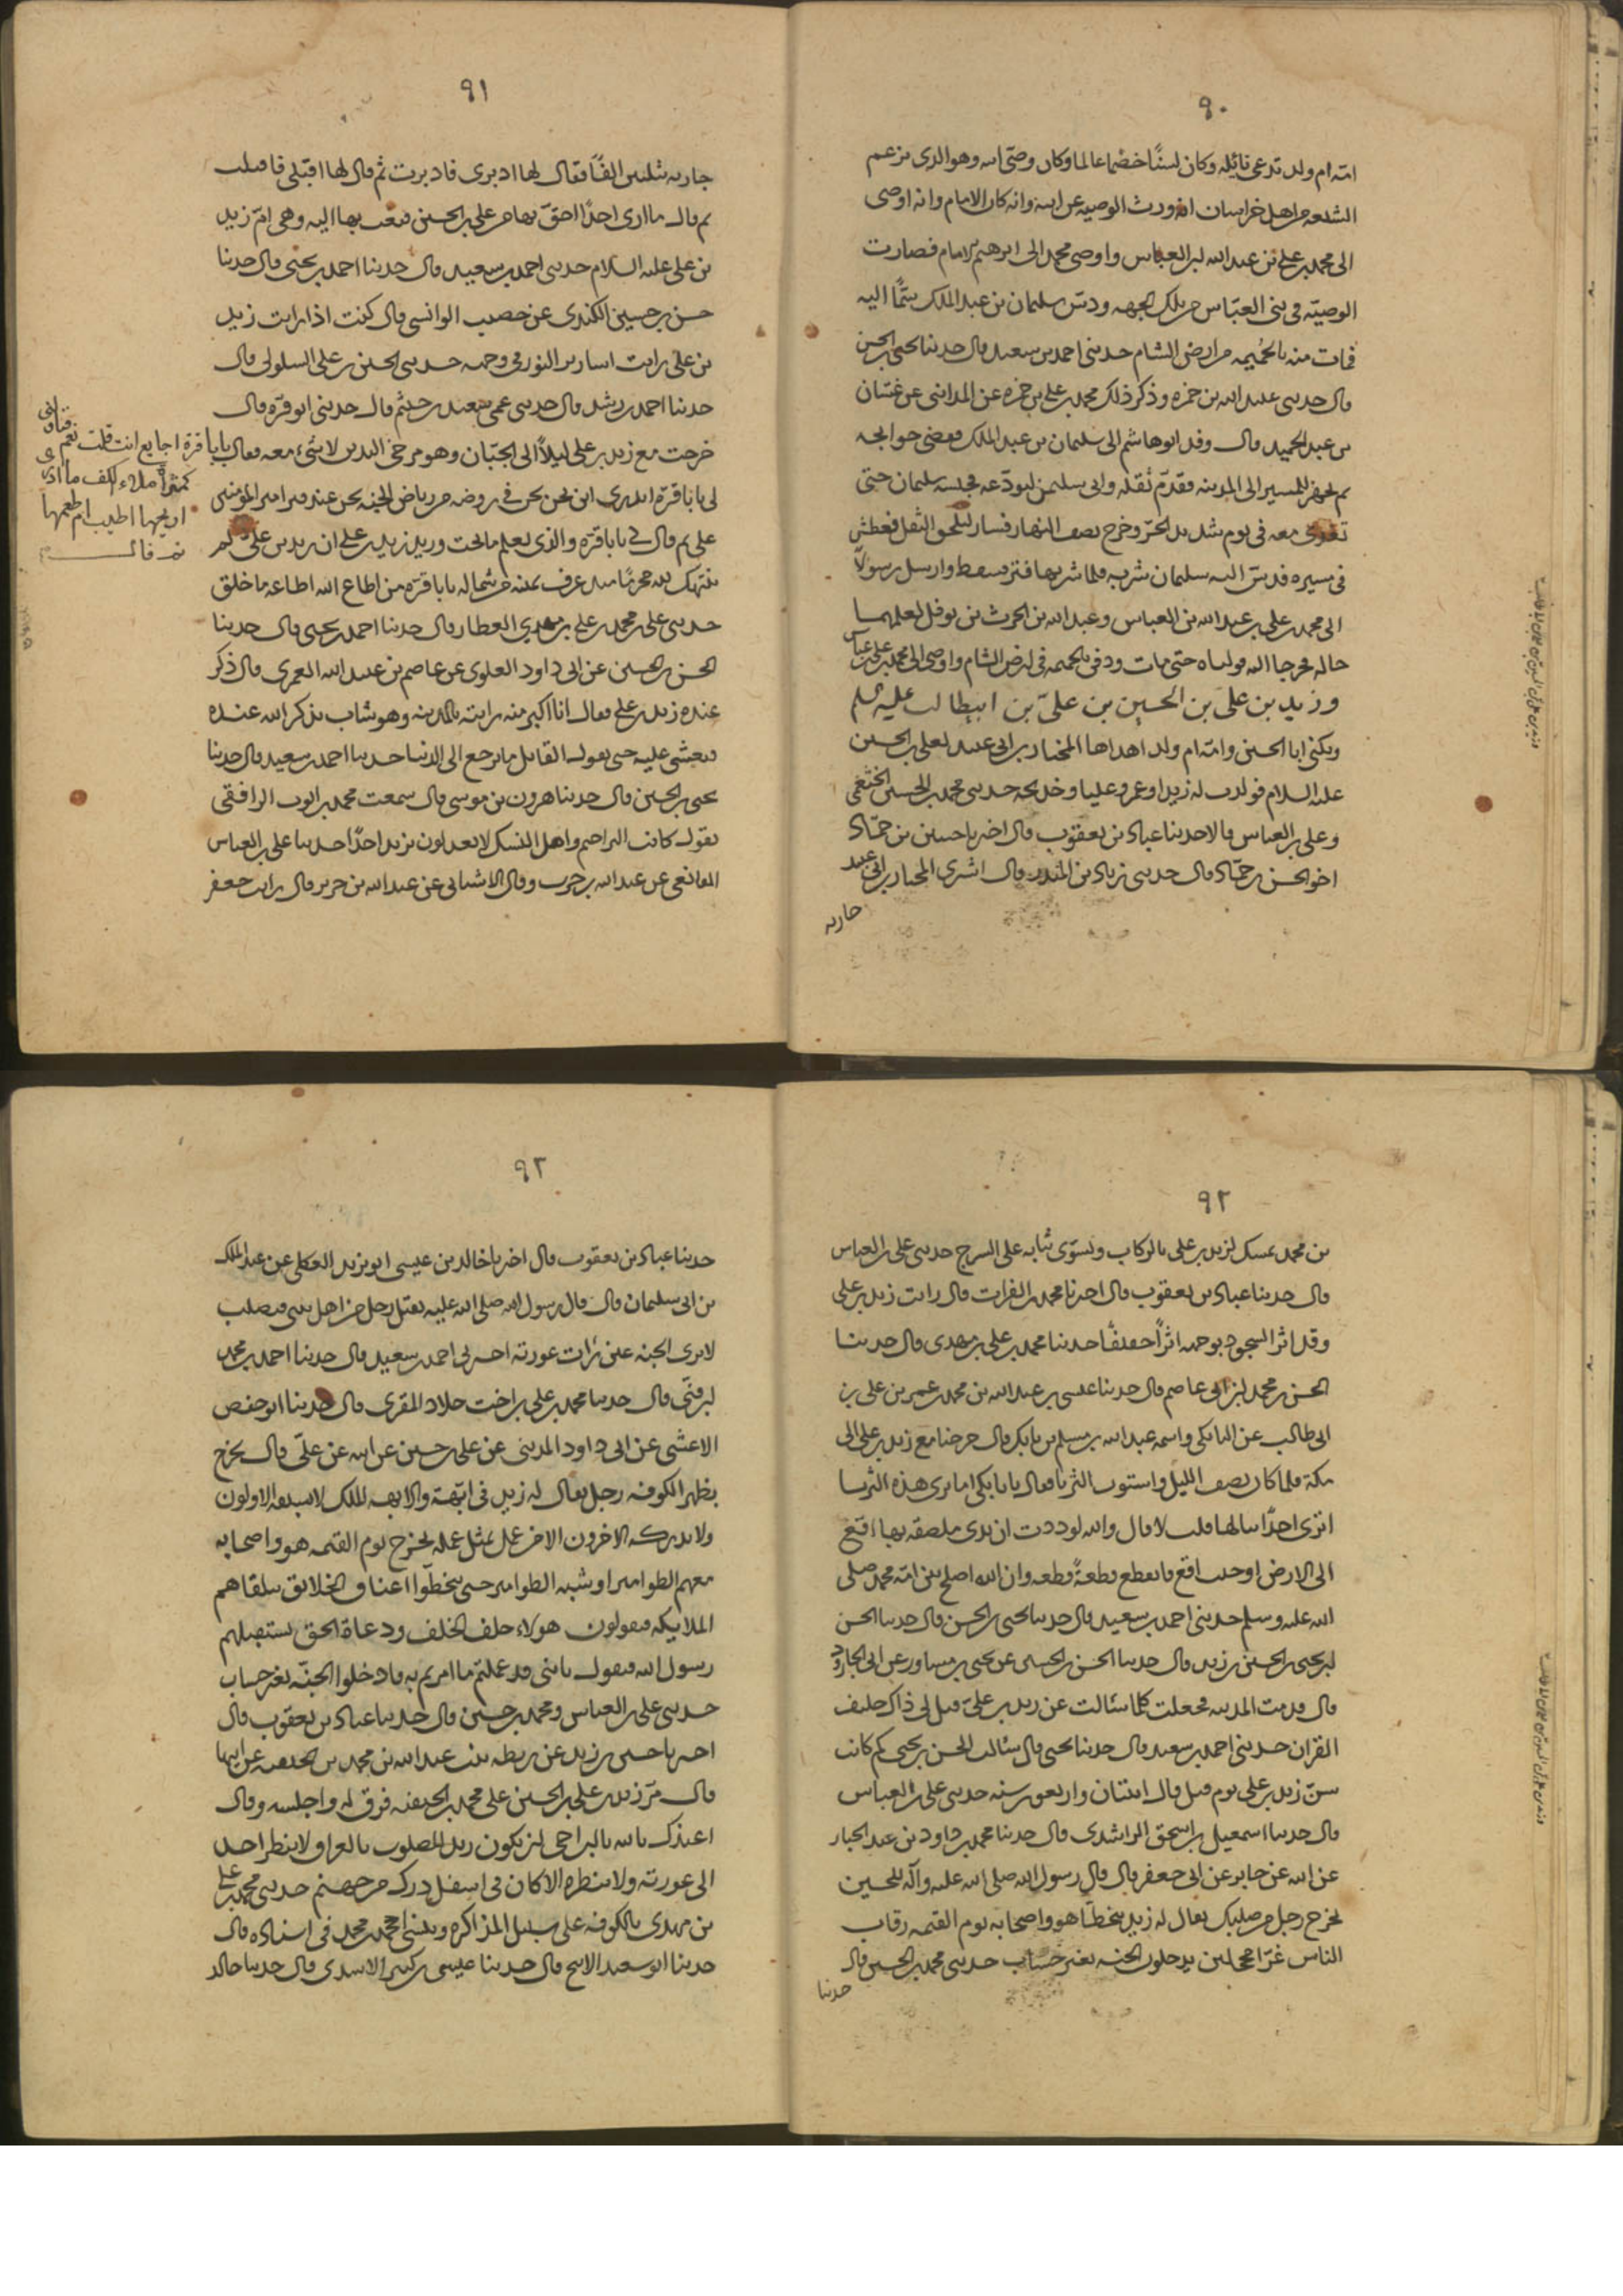 ٩٠
امّه ام ولد تدعى نائله وكان لسنًا خصما عالما وكان وصىّ ابيه وهو الذى تزعم
الشيعه من اهل خراسان انه ورث الوصيه عن ابيه وانه كان الامام وانه اوصى
الى محمد بن على بن عبد الله بن العباس واوصى محمد الى ابرهيم الامام فصارت
الوصيّه فى بنى العبّاس من تلك الجهه ودسّ سليمان بن عبد الملك سمًّا اليه
فمات منه بالحُميمه من ارض الشام حدثنى احمد بن سعيد قال حدثنا يحيى بن الحسن
قال حدثنى عبيد الله بن حمزه وذكر ذلك محمد بن على بن حمزه عن المداىنى عن غسّان
بن عبد الحميد قال وفد ابو هاشم الى سليمان بن عبد الملك فقضى حوايجه
ثم تجهز للمسير الى المدينه فقدّم ثَقَله واتى سليمن ليودّعه فحبسه سليمان حتى
تغدى معه فى يوم شديد الحرّ وخرج نصف النهار فسار ليلحق الثقل فعطش
فى مسيره فدسّ اليه سليمان شربه فلما شربها فتر فسقط وارسل رسولاً
الى محمد بن على بن عبد الله بن العباس وعبد الله بن الحرث بن نوفل ليعلمهما
حاله فخرجا اليه فولياه حتى مات ودفن بالحميمه فى ارض الشام واوصى الى محمد بن على بن عباس
وزيد بن على بن الحسين بن علىّ بن ابيطالب عليه السلم
ويكنى ابا الحسين وامّه ام ولد اهداها المختار بن ابى عبيد لعلى بن الحسين
عليه السلام فولدت له زيدا وعمر وعليا وخديجه حدثنى محمد بن الحسين الخثعمى
وعلى بن العباس قالا حدثنا عباد بن يعقوب قال اخبرنا حسين بن حمّاد
اخو الحسن بن حمّاد قال حدثنى زياد بن المنذر قال اشترى المختار بن ابى عبيد
جاريه
٩١
جاريه بثلثين الفًا فقال لها ادبرى فادبرت ثم قال لها اقبلى فاقبلت
ثم قال ما ارى احدًا احقّ بها من على بن الحسين فبعث بها اليه وهى امّ زيد
بن على عليه السلام حدثنى احمد بن سعيد قال حدثنا احمد بن يحيى قال حدثنا
حسن بن حسين الكندى عن خصيب الوابشى قال كنت اذا رايت زيد
بن على رايت اسارير النور فى وجهه حدثنى الحسن بن على السلولى قال
حدثنا احمد بن رشد قال حدثنى عمى سعيد بن خثيم قال حدثنى ابو قرّه قال
خرجت مع زيد بن على ليلاً الى الجبّان وهو مرخى اليدين لا شىء معه فقال يابا قرة اجايع انت قلت نعم فناولنى
كمثراة ملاء الكف ما ادرى
اريحها اطيب ام طعمها
ثم قال
لى يابا قرّه اتدرى اين نحن نحن فى روضه من رياض الجنه نحن عند قبر امير المؤمنين
على ثم قال لى يابا قرّه والذى يعلم ما تحت وريد زيد بن على ان زيد بن على لم
ينتهك لله محرمًا منذ عرف يمينه من شماله يابا قرّه من اطاع الله اطاعه ما خلق
حدثنى على بن محمد بن على بن مهدى العطار قال حدثنا احمد بن يحيى قال حدثنا
الحسن بن الحسين عن ابى داود العلوى عن عاصم بن عبيد الله العمرى قال ذكر
عنده زيد بن على فقال انا اكبر منه رايته بالمدينه وهو شاب يذكر الله عنده
فيغشى عليه حتى يقول القايل ما يرجع الى الدنيا حدثنا احمد بن سعيد قال حدثنا
يحيى بن الحسين قال حدثنا هرون بن موسى قال سمعت محمد بن ايوب الرافقى
يقول كانت المراجيه واهل النسك لا يعدلون بزيد احدًا حدثنا على بن العباس
المقانعى عن عبد الله بن حرب وقال الاشنانى عن عبد الله بن جرير قال رايت جعفر
٩٢
بن محمد يمسك لزيد بن على بالركاب ويسوّى ثيابه على السرج حدثنى على بن العباس
قال حدثنا عباد بن يعقوب قال اخبرنا محمد بن الفرات قال رايت زيد بن على
وقد اثر السجود بوجهه اثرًا خفيفًا حدثنا محمد بن على بن مهدى قال حدثنا
الحسن بن محمد بن ابى عاصم قال حدثنا عيسى بن عبد الله بن محمد بن عمر بن على بن
ابى طالب عن البابكى واسمه عبد الله بن مسلم بن بابك قال خرجنا مع زيد بن على الى
مكة فلما كان نصف الليل واستوت الثريا فقال يا بابكى اما ترى هذه الثريا
اترى احدًا ينالها قلت لا قال والله لوددت ان يدى ملصقه بها اقع
الى الارض او حيث اقع فاتقطع قطعةً قطعه وان الله اصلح بين امّه محمد صلى
الله عليه وسلم حدثنى احمد بن سعيد قال حدثنا يحيى بن الحسن قال حدثنا الحسن
بن يحيى بن الحسين بن زيد قال حدثنا الحسن بن الحسين عن يحيى بن مساور عن ابى الجارود
قال قدمت المدينه فجعلت كلما سئالت عن زيد بن علىّ قيل لى ذاك حليف
القران حدثنى احمد بن سعيد قال حدثنا يحيى قال سئالت الحسن بن يحيى كم كانت
سنّ زيد بن على يوم قتل قال اثنتان واربعون سنه حدثنى على بن العباس
قال حدثنا اسمعيل بن اسحق الراشدى قال حدثنا محمد بن داود بن عبد الجبار
عن ابيه عن جابر عن ابى جعفر قال قال رسول الله صلى الله عليه وآله للحسين
يخرج رجل من صلبك يقال له زيد يتخطّا هو واصحابه يوم القيمه رقاب
الناس غرّا محجلين يدخلون الجنه بغير حساب حدثنى محمد بن الحسين قال
حدثنا
٩٣
حدثنا عباد بن يعقوب قال اخبرنا خالد بن عيسى ابو زيد العكلى عن عبد الملك
بن ابى سليمان قال قال رسول الله صلى الله عليه يقتل رجل من اهل بيتى فيصلب
لا ترى الجنه عين رات عورته اخبرنى احمد بن سعيد قال حدثنا احمد بن محمد
بن قنّى قال حدثنا محمد بن على بن اخت خلاد المقرى قال حدثنا ابو حفص
الاعشى عن ابى داود المدينى عن على بن حسين عن ابيه عن علّى قال يخرج
بظهر الكوفه رجل يقال له زيد فى ابّهة والابهه الملك لا يسبقه الاولون
ولا يدركه الاخرون الا من عمل بمثل عمله يخرج يوم القيمه هو واصحابه
معهم الطوامير او شبه الطوامير حتى يتخطّوا اعناق الخلايق تتلقاهم
الملايكه فيقولون هولاء خلف الخلف ودعاة الحق يستقبلهم
رسول الله فيقول يا بنى قد عملتم ما امرتم به فادخلوا الجنّه بغير حساب
حدثنى على بن العباس ومحمد بن حسين قال حدثنا عباد بن يعقوب قال
اخبرنا حسين بن زيد عن ريطه بنت عبد الله بن محمد بن الحنفيه عن ابيها
قال مرّ زيد بن على بن الحسين على محمد بن الحنفيه فرق له واجلسه وقال
اعيذك بالله يابن اخى ان تكون زيد المصلوب بالعراق لا ينظر احد
الى عورته ولا ينظره الا كان فى اسفل درك من جهنم حدثنى محمد بن على
بن مهدى بالكوفه على سبيل المذاكره وينسى احمد بن محمد فى اسناده قال
حدثنا ابو سعيد الاشج قال حدثنا عيسى بن كثير الاسدى قال حدثنا خالد